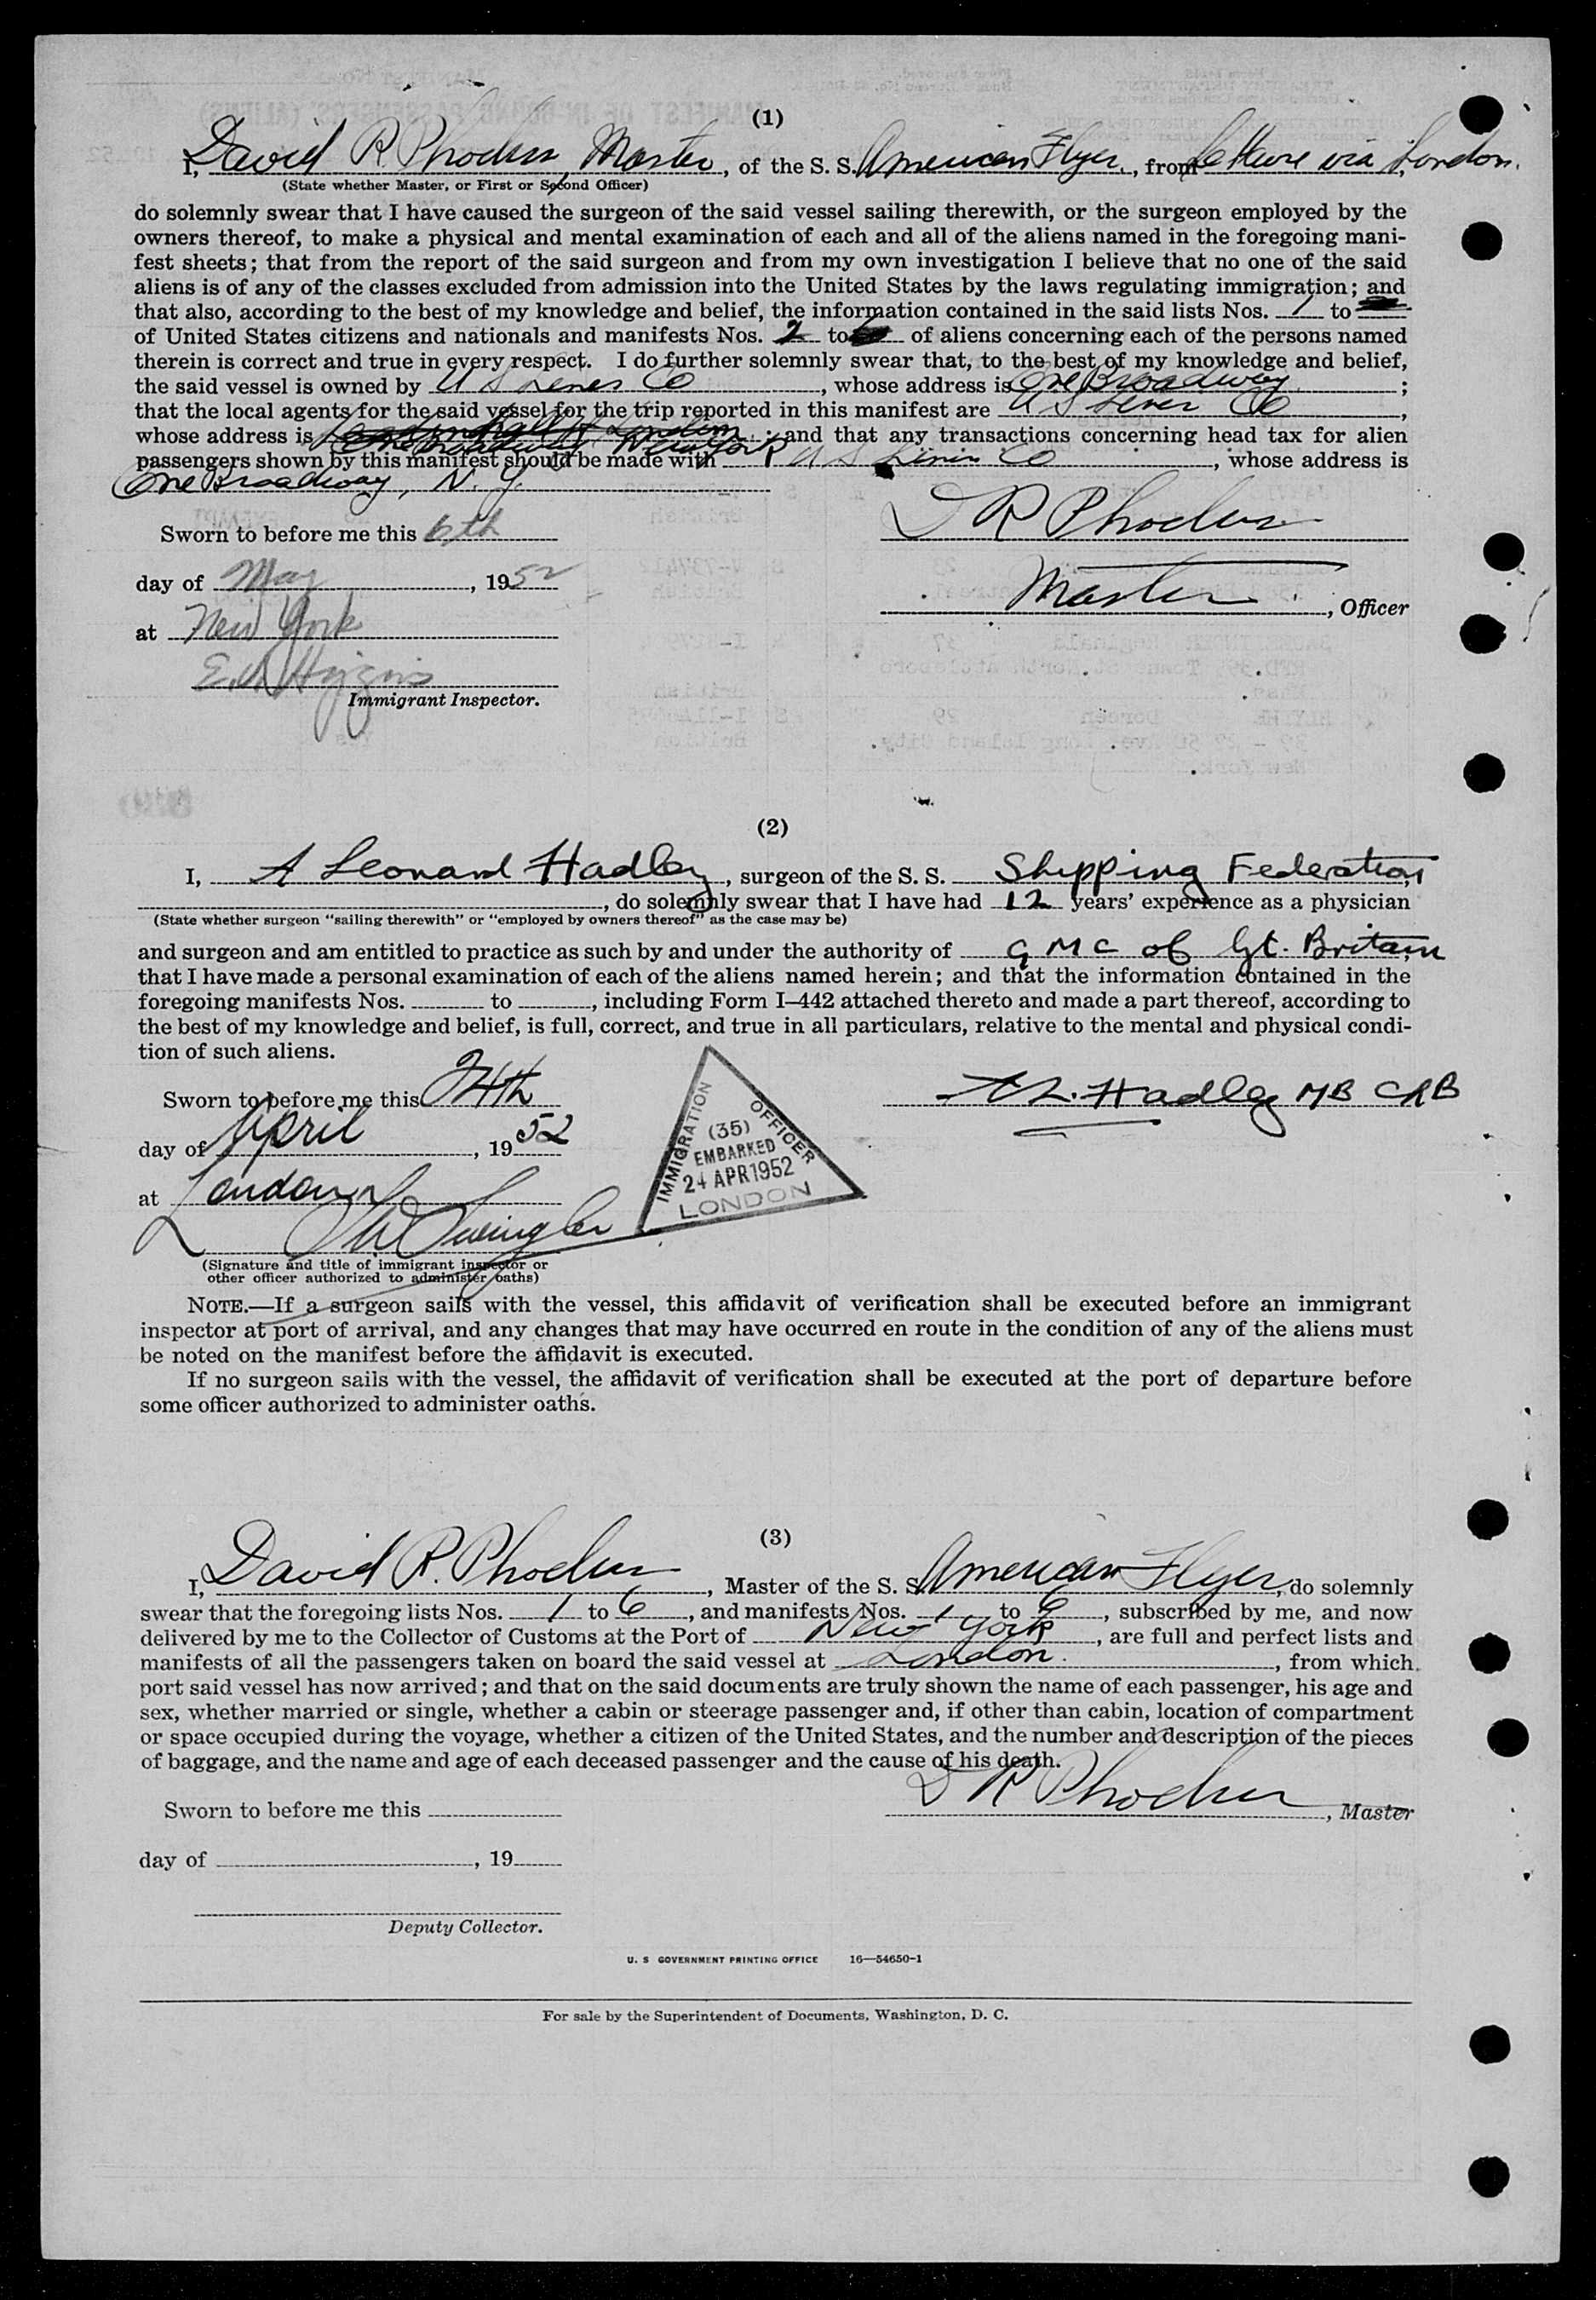 (1)
I, David R. Phoelus, Master, of the S. S. American Flyer, from Le Havre via London.
(State whether Master, or First or Second Officer)
do solemnly swear that I have caused the surgeon of the said vessel sailing therewith, or the surgeon employed by the
owners thereof, to make a physical and mental examination of each and all of the aliens named in the foregoing mani-
fest sheets; that from the report of the said surgeon and from my own investigation I believe that no one of the said
aliens is of any of the classes excluded from admission into the United States by the laws regulating immigration; and
that also, according to the best of my knowledge and belief, the information contained in the said lists Nos. 1 to
of United States citizens and nationals and manifests Nos. 2 to 6 of aliens concerning each of the persons named
therein is correct and true in every respect. I do further solemnly swear that, to the best of my knowledge and belief,
the said vessel is owned by U S Lines Co, whose address is One Broadway;
that the local agents for the said vessel for the trip reported in this manifest are U S Lines Co,
whose address is One Broadway New York; and that any transactions concerning head tax for alien
passengers shown by this manifest should be made with U S Lines Co, whose address is
One Broadway, N. Y.
Sworn to before me this 6th
day of May, 1952
at New York
E. Higgins
Immigrant Inspector.
D R Phoelus
Master, Officer
(2)
I, A Leonard Hadley, surgeon of the S. S. Shipping Federation
, do solemnly swear that I have had 12 years' experience as a physician
(State whether surgeon "sailing therewith" or "employed by owners thereof" as the case may be)
and surgeon and am entitled to practice as such by and under the authority of G M C of Gt. Britain
that I have made a personal examination of each of the aliens named herein; and that the information contained in the
foregoing manifests Nos. to , including Form I-442 attached thereto and made a part thereof, according to
the best of my knowledge and belief, is full, correct, and true in all particulars, relative to the mental and physical condi-
tion of such aliens.
Sworn to before me this 24th
day of April, 1952
at London
(Signature and title of immigrant inspector or
other officer authorized to administer oaths)
IMMIGRATION OFFICER
(35)
EMBARKED
24 APR 1952
LONDON
A L. Hadley MB ChB
NOTE.—If a surgeon sails with the vessel, this affidavit of verification shall be executed before an immigrant
inspector at port of arrival, and any changes that may have occurred en route in the condition of any of the aliens must
be noted on the manifest before the affidavit is executed.
If no surgeon sails with the vessel, the affidavit of verification shall be executed at the port of departure before
some officer authorized to administer oaths.
(3)
I, David R. Phoelus, Master of the S. S. American Flyer, do solemnly
swear that the foregoing lists Nos. 1 to 6, and manifests Nos. 1 to 6, subscribed by me, and now
delivered by me to the Collector of Customs at the Port of New York, are full and perfect lists and
manifests of all the passengers taken on board the said vessel at London., from which
port said vessel has now arrived; and that on the said documents are truly shown the name of each passenger, his age and
sex, whether married or single, whether a cabin or steerage passenger and, if other than cabin, location of compartment
or space occupied during the voyage, whether a citizen of the United States, and the number and description of the pieces
of baggage, and the name and age of each deceased passenger and the cause of his death.
D R Phoelus, Master
Sworn to before me this
day of , 19
Deputy Collector.
U. S GOVERNMENT PRINTING OFFICE 16—54650-1
For sale by the Superintendent of Documents, Washington, D. C.